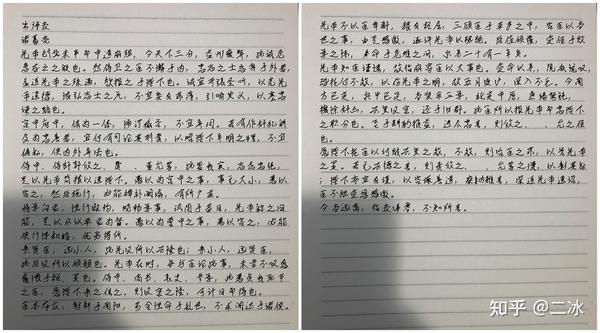 出师表
诸葛亮
先帝创业未半而中道崩殂,今天下三分,益州疲弊,此诚危急
存亡之秋也。然侍卫之臣不懈于内,忠志之士忘身于外者,
盖追先帝之殊遇,欲报之于陛下也。诚宜开张圣听,以光先
帝遗德,恢弘志士之气,不宜妄自菲薄,引喻失义,以塞忠
谏之路也。
宫中府中,俱为一体,陟罚臧否,不宜异同。若有作奸犯科
及为忠善者,宜付有司论其刑赏,以昭陛下平明之理,不宜
偏私,使内外异法也。
侍中、侍郎郭攸之、费 、董允等,此皆良实,志虑忠纯,
是以先帝简拔以遗陛下。愚以为宫中之事,事无大小,悉以
咨之,然后施行,必能裨补阙漏,有所广益。
将军向宠,性行淑均,晓畅军事,试用于昔日,先帝称之曰
能,是以众议举宠为督。愚以为营中之事,悉以咨之,必能
使行阵和睦,优劣得所。
亲贤臣,远小人,此先汉所以兴隆也;亲小人,远贤臣,
此后汉所以倾颓也。先帝在时,每与臣论此事,未尝不叹息
痛恨于桓、灵也。侍中、尚书、长史、参军,此悉贞良死节
之臣,愿陛下亲之信之,则汉室之隆,可计日而待也。
臣本布衣,躬耕于南阳,苟全性命于乱世,不求闻达于诸侯。
先帝不以臣卑鄙,猥自枉屈,三顾臣于草庐之中,咨臣以当
世之事,由是感激,遂许先帝以驱驰。后值倾覆,受任于败
军之际,奉命于危难之间,尔来二十有一年矣。
先帝知臣谨慎,故临崩寄臣以大事也。受命以来,夙夜忧叹,
恐托付不效,以伤先帝之明,故五月渡泸,深入不毛。今南
方已定,兵甲已足,当奖率三军,北定中原,庶竭驽钝,
攘除奸凶,兴复汉室,还于旧都。此臣所以报先帝而忠陛下
之职分也。至于斟酌损益,进尽忠言,则攸之、 、允之任
也。
愿陛下托臣以讨贼兴复之效,不效,则治臣之罪,以告先帝
之灵。若无兴德之言,则责攸之、 、允等之慢,以彰其咎
;陛下亦宜自谋,以咨诹善道,察纳雅言,深追先帝遗诏,
臣不胜受恩感激。
今当远离,临表涕零,不知所言。
知乎 @二冰